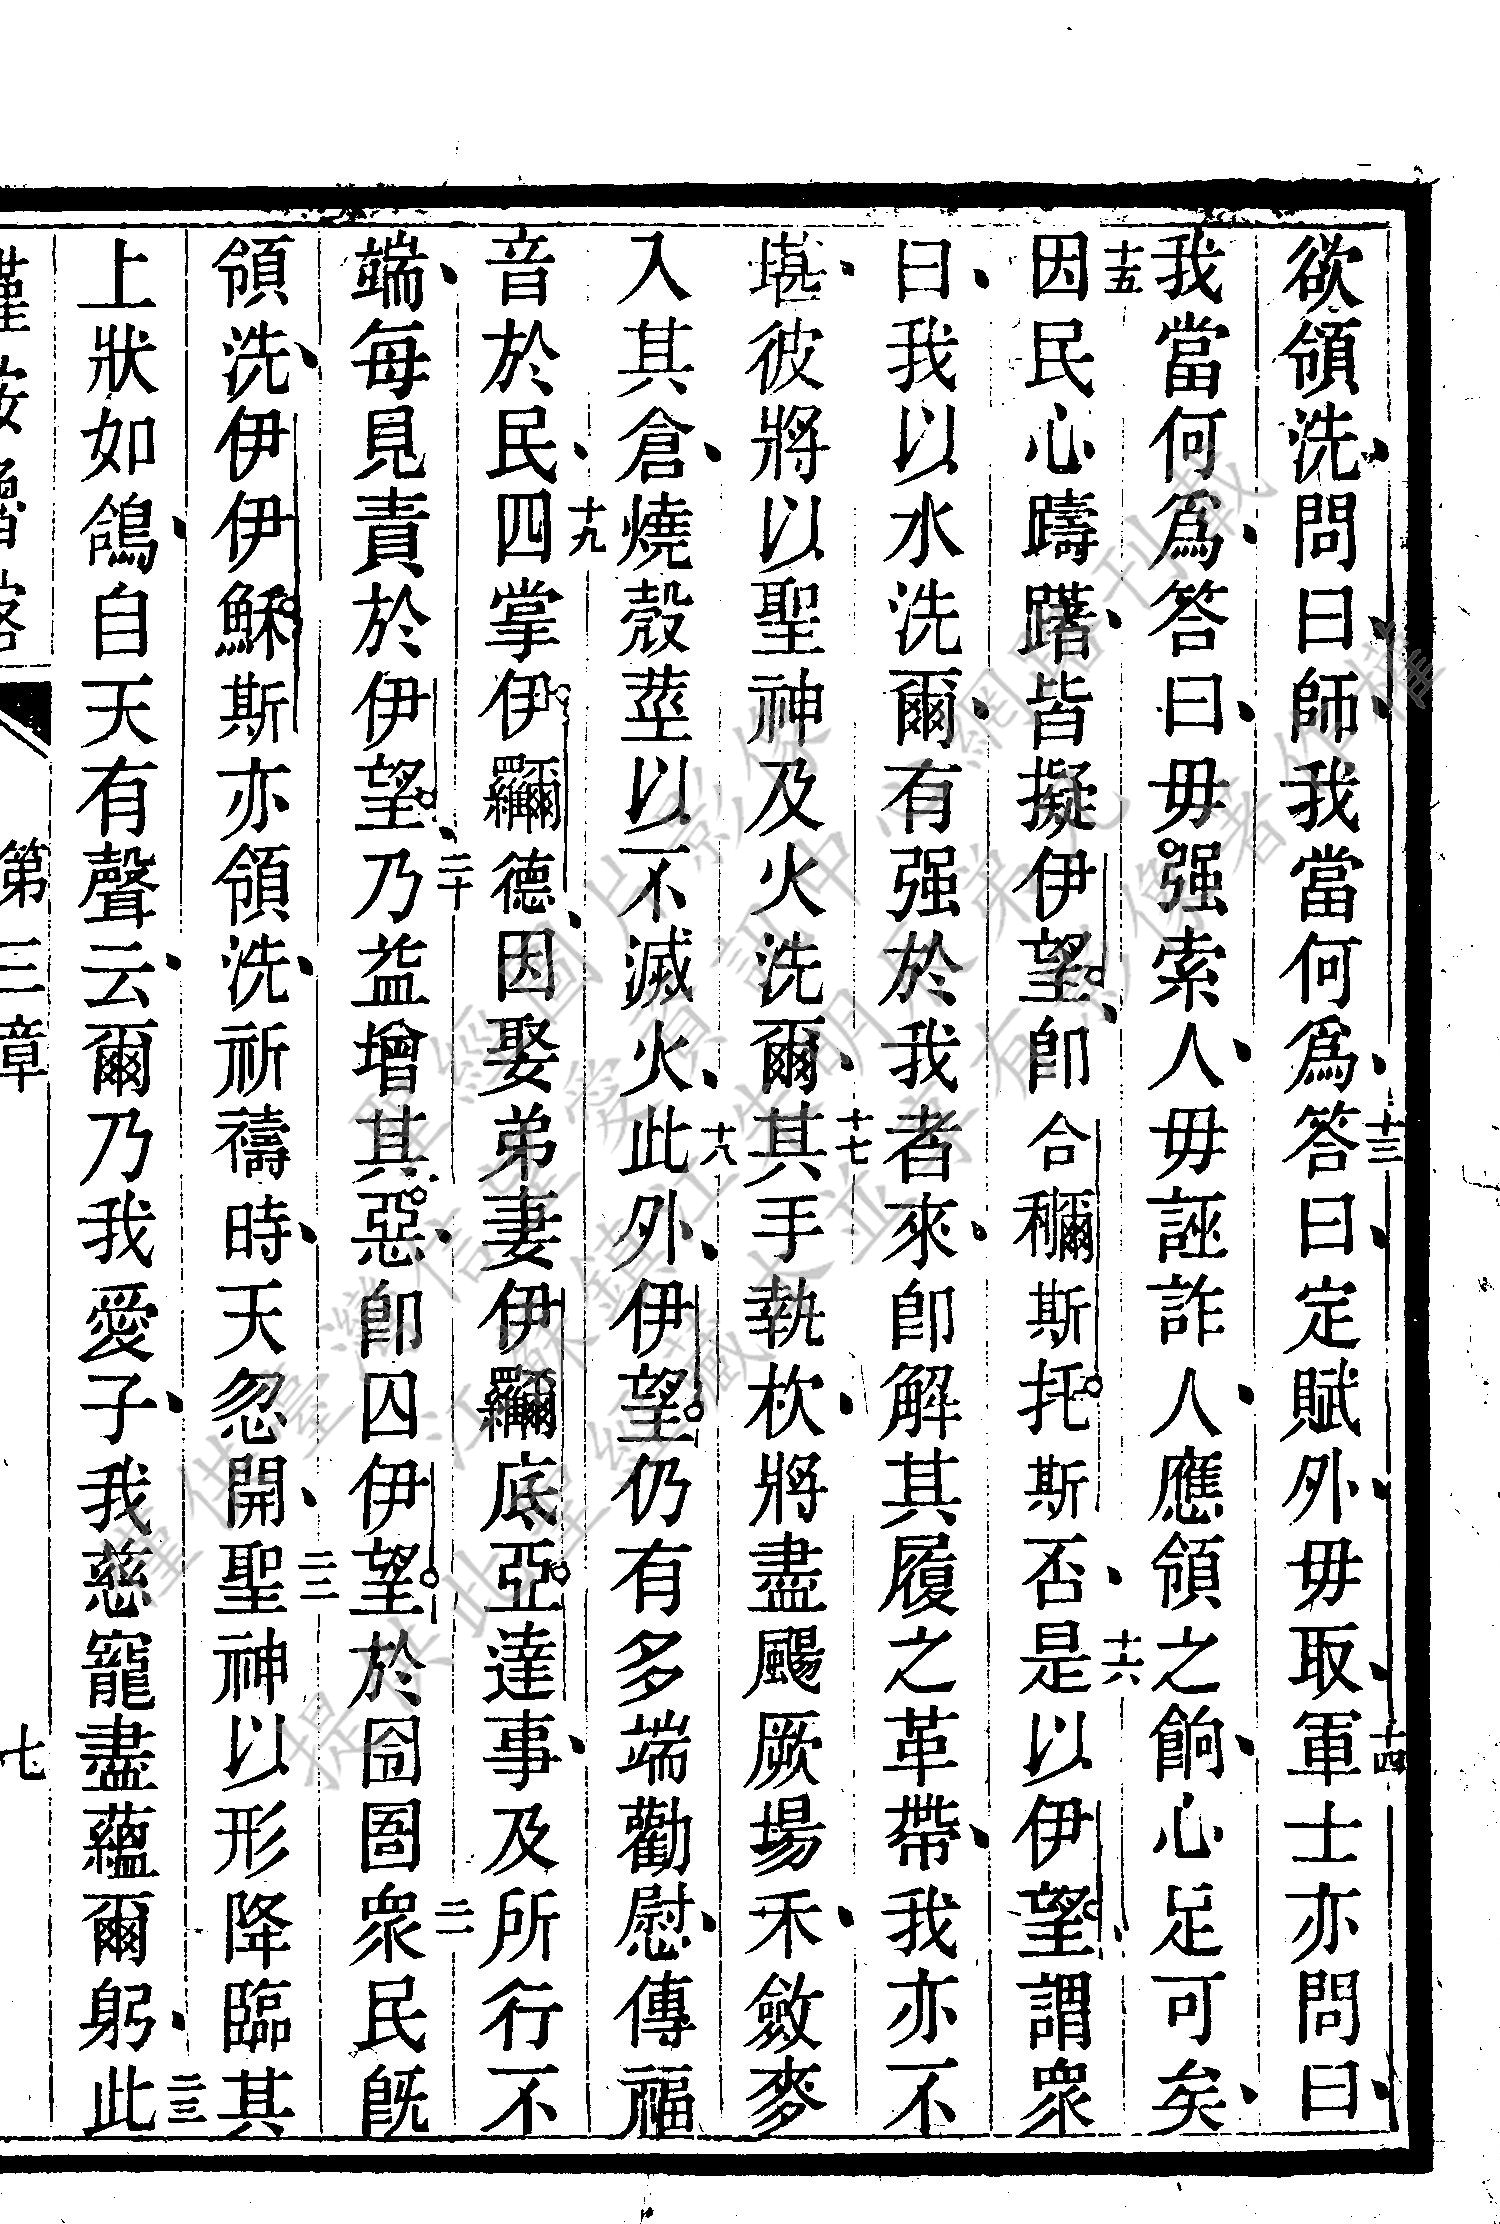 欲領洗、問曰、師、我當何爲、十三答曰、定賦外、毋取、十四軍士亦問曰、
我當何爲、答曰、毋强索人、毋誣詐人、應領之餉、心足可矣、
十五因民心躊躇、皆擬伊望、卽合穪斯托斯否、十六是以伊望、謂衆
曰、我以水洗爾、有强於我者來、卽解其履之革帶、我亦不
堪、彼將以聖神及火洗爾、十七其手執杴、將盡颺厥場禾、斂麥
入其倉、燒殼莖以不滅火、十八此外、伊望仍有多端勸慰、傳福
音於民、十九四掌伊囉德、因娶弟妻伊囉底亞達事、及所行不
端、每見責於伊望、二十乃益增其惡、卽囚伊望於囹圄、二一衆民旣
領洗、伊伊穌斯亦領洗、祈禱時、天忽開、二二聖神以形降臨其
上、狀如鴿、自天有聲云、爾乃我愛子、我慈寵盡蘊爾躬、二三此
第三章 七